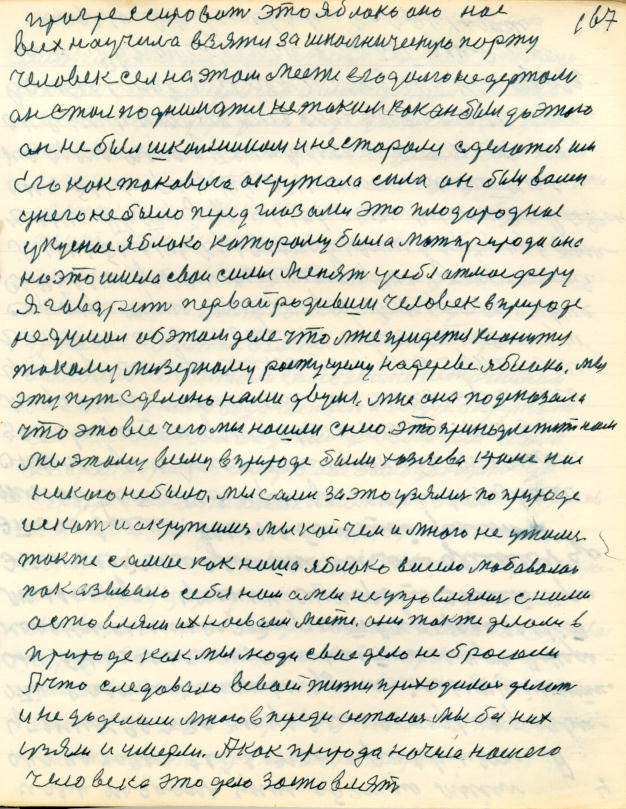 167
прогрессироват это яблоко оно нас
всех научила взяти за шполническую порту
человек сел на этом месте его долго не держали
он стал подниматися не таким как он был до этого
он не был школником и не старался сделатся им
Его как такового окружала сила он был волен
у него не было перед глазами это плодородное
укусное яблоко которому была мат природа она
на это имела свои силы менят у себя атмосферу
Я говарит первай родивши человек в природе
не думал об этом деле что мне придется кланится
такому мизерному растущему на дереве яблоко. мы
эту пут сделоно нами двумя. мне она подсказала
что это все чего мы нашли с нею это принодлежит нам
мы этому всему в природе были хозяева кроме нас
никого небыло, мы сами за это узялис по природе
искат и окружилис мы кой чем и много не узяли.
также самое как наша яблоко висело любавалас
показывало себя нам а мы не управлялис с ними
оставляли их на своем месте. они также делали в
природе как мы люди свае дело не бросали
А что следовало в своей жизни приходилос делат
и не доделали много впереди осталос мы бы них
узяли и умерли. А как природа начала нашего
человека это дело заставлят